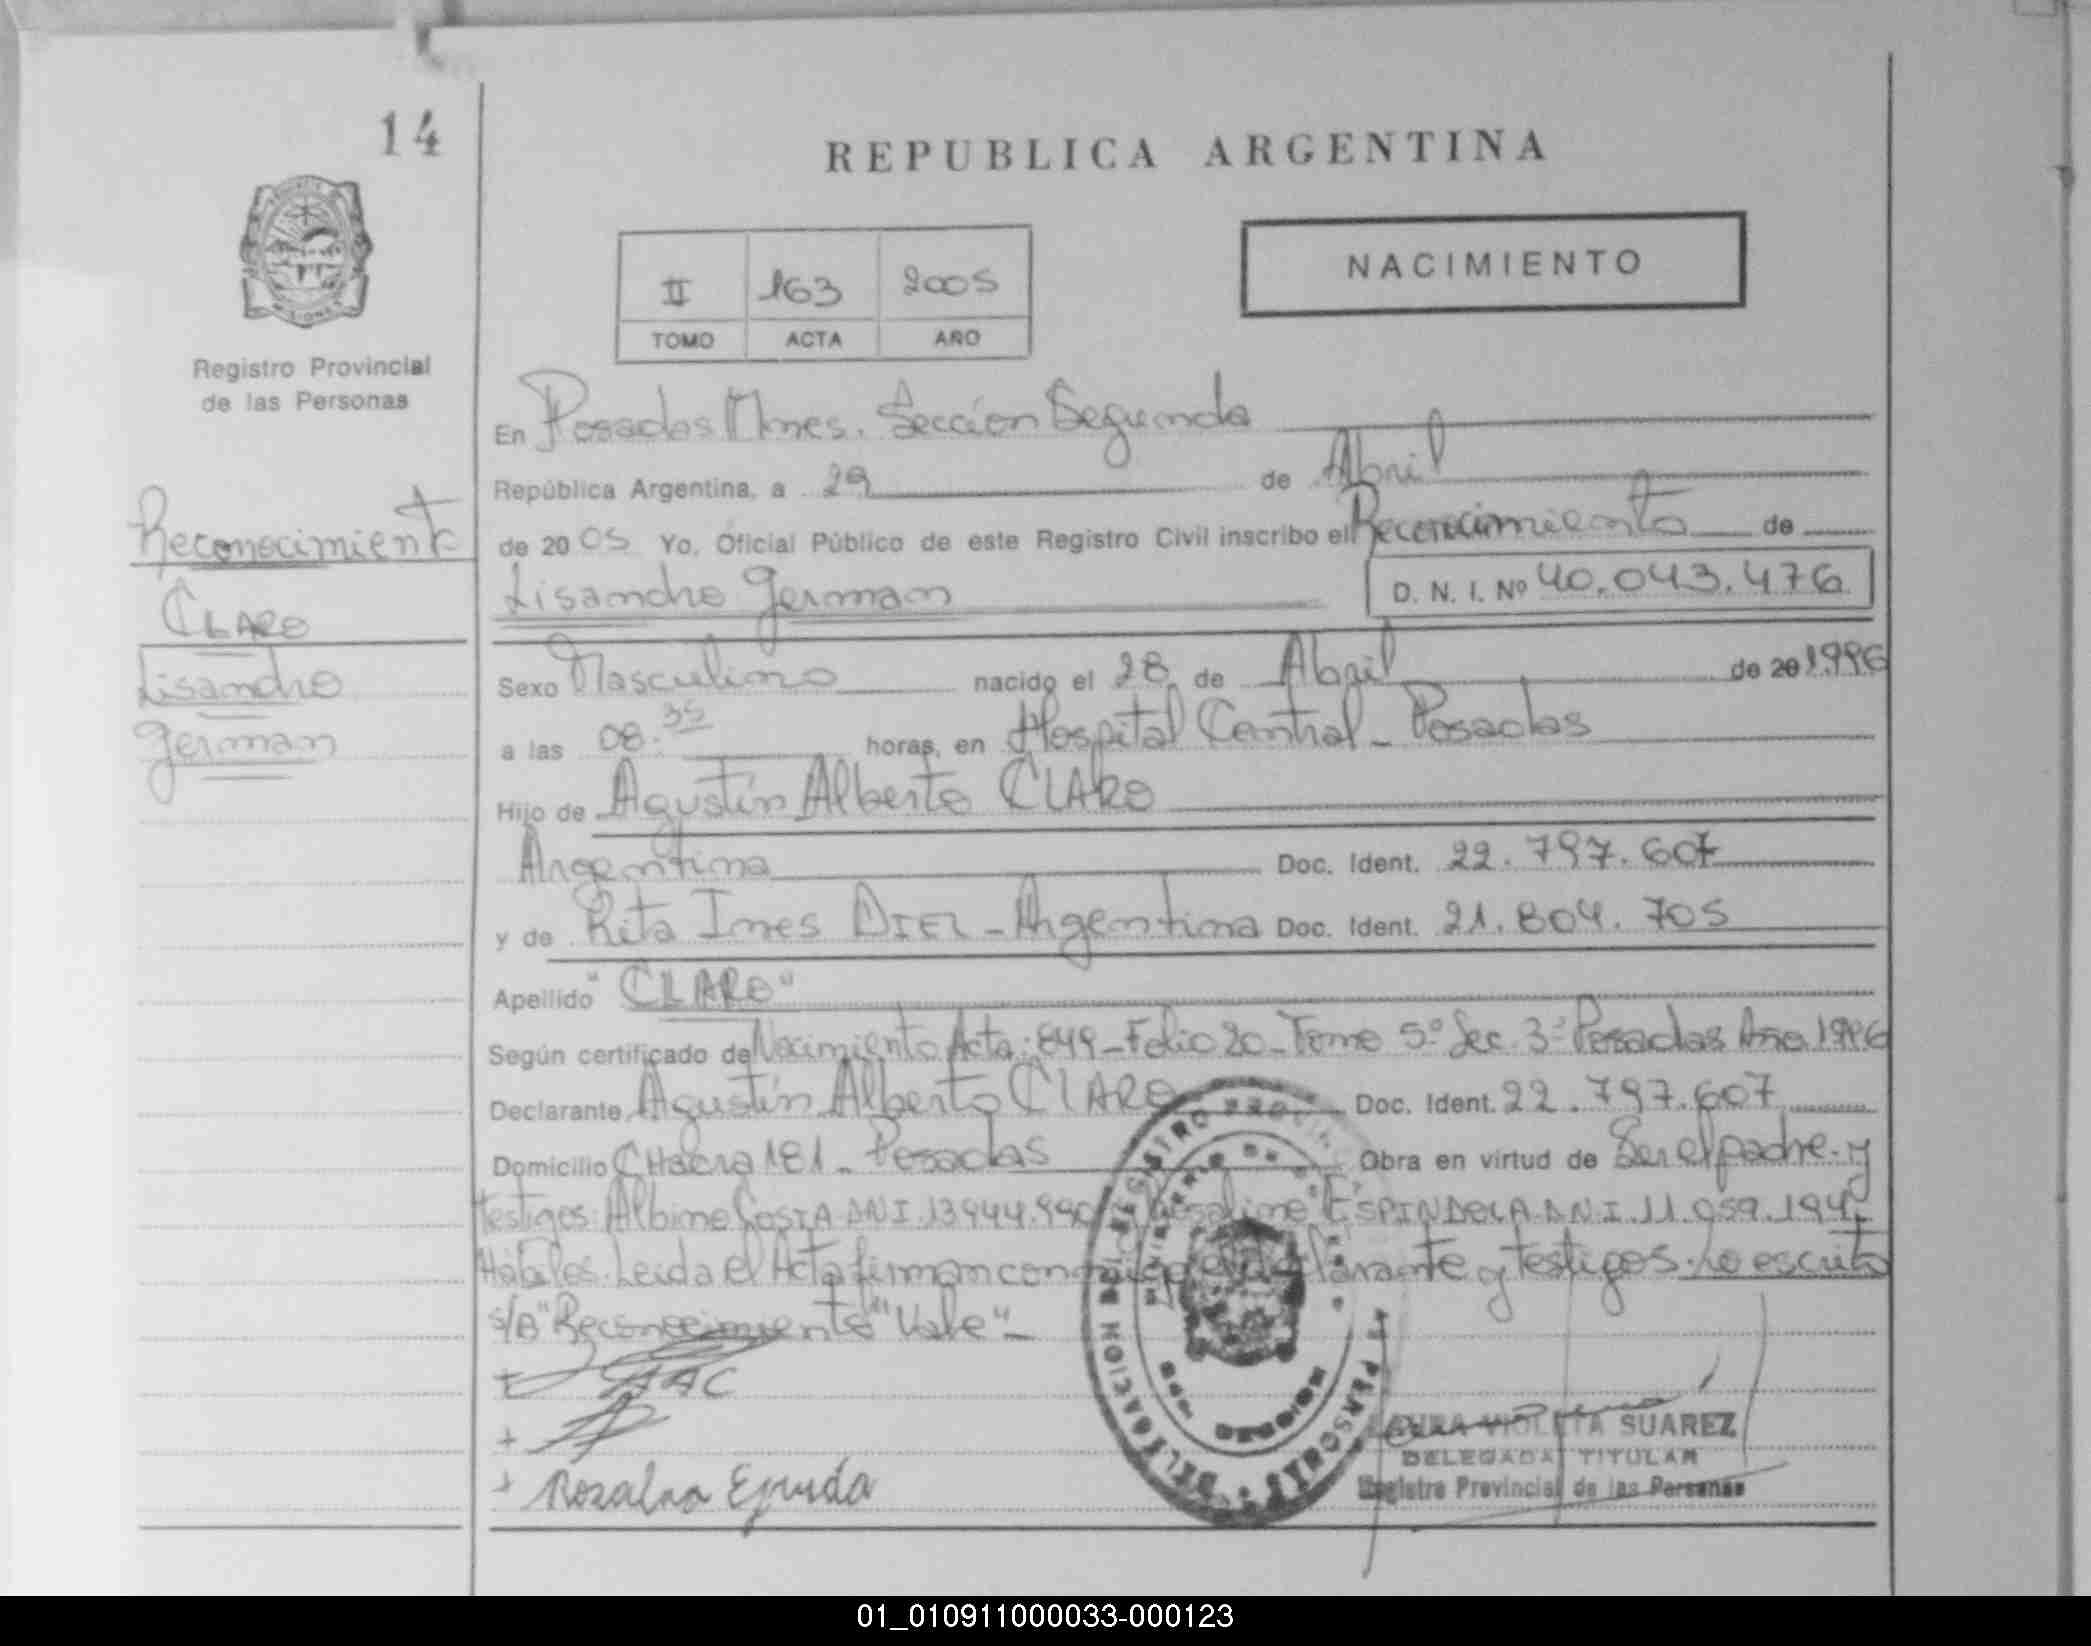 14
REPUBLICA ARGENTINA
II 163 2005
TOMO ACTA AÑO
NACIMIENTO
Registro Provincial
de las Personas
Reconocimiento
CLARO
Lisandro
German
En Posadas Mnes. Sección Segunda
República Argentina, a 29 de Abril
de 2005 Yo, Oficial Público de este Registro Civil inscribo el Reconocimiento de
Lisandro German D. N. I. Nº 40.043.476
Sexo Masculino nacido el 28 de Abril de 20 1996
a las 08.35 horas, en Hospital Central - Posadas
Hijo de Agustín Alberto CLARO
Argentina Doc. Ident. 22.797.607
y de Rita Ines DIEL - Argentina Doc. Ident. 21.804.705
Apellido "CLARO"
Según certificado de Nacimiento Acta: 849 - Folio 20 - Tomo 5º Sec. 3ª Posadas Año 1996
Declarante Agustín Alberto CLARO Doc. Ident. 22.797.607
Domicilio CHacra 181 - Posadas Obra en virtud de Ser el padre - y
testigos: Albino COSTA DNI. 13944.990 ESPINDOLA D.N.I. 11.059.194
Hábiles. Leida el Acta firman con el declarante y testigos. Lo escrito
s/B "Reconocimiento" "Vale" -
AAC
LAURA VIOLETA SUAREZ
DELEGADA TITULAR
Registro Provincial de las Personas
01_010911000033-000123